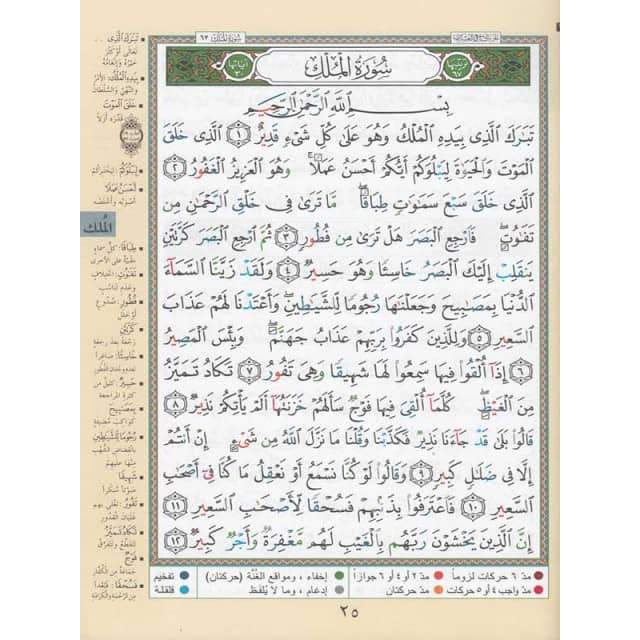 سُورَةُ المُلْكِ ٦٧
سُورَةُ الْمُلْكِ
تَرْتِيبُهَا ٦٧
آيَاتُهَا ٣٠
بِسْمِ اللَّهِ الرَّحْمَٰنِ الرَّحِيمِ
تَبَارَكَ الَّذِي بِيَدِهِ الْمُلْكُ وَهُوَ عَلَىٰ كُلِّ شَيْءٍ قَدِيرٌ ١ الَّذِي خَلَقَ
الْمَوْتَ وَالْحَيَوٰةَ لِيَبْلُوَكُمْ أَيُّكُمْ أَحْسَنُ عَمَلًا وَهُوَ الْعَزِيزُ الْغَفُورُ ٢
الَّذِي خَلَقَ سَبْعَ سَمَٰوَٰتٍ طِبَاقًا مَّا تَرَىٰ فِي خَلْقِ الرَّحْمَٰنِ مِن
تَفَٰوُتٍ فَارْجِعِ الْبَصَرَ هَلْ تَرَىٰ مِن فُطُورٍ ٣ ثُمَّ ارْجِعِ الْبَصَرَ كَرَّتَيْنِ
يَنقَلِبْ إِلَيْكَ الْبَصَرُ خَاسِئًا وَهُوَ حَسِيرٌ ٤ وَلَقَدْ زَيَّنَّا السَّمَاءَ
الدُّنْيَا بِمَصَٰبِيحَ وَجَعَلْنَٰهَا رُجُومًا لِّلشَّيَٰطِينِ وَأَعْتَدْنَا لَهُمْ عَذَابَ
السَّعِيرِ ٥ وَلِلَّذِينَ كَفَرُوا بِرَبِّهِمْ عَذَابُ جَهَنَّمَ وَبِئْسَ الْمَصِيرُ
٦ إِذَا أُلْقُوا فِيهَا سَمِعُوا لَهَا شَهِيقًا وَهِيَ تَفُورُ ٧ تَكَادُ تَمَيَّزُ
مِنَ الْغَيْظِ كُلَّمَا أُلْقِيَ فِيهَا فَوْجٌ سَأَلَهُمْ خَزَنَتُهَا أَلَمْ يَأْتِكُمْ نَذِيرٌ ٨
قَالُوا بَلَىٰ قَدْ جَاءَنَا نَذِيرٌ فَكَذَّبْنَا وَقُلْنَا مَا نَزَّلَ اللَّهُ مِن شَيْءٍ إِنْ أَنتُمْ
إِلَّا فِي ضَلَٰلٍ كَبِيرٍ ٩ وَقَالُوا لَوْ كُنَّا نَسْمَعُ أَوْ نَعْقِلُ مَا كُنَّا فِي أَصْحَٰبِ
السَّعِيرِ ١٠ فَاعْتَرَفُوا بِذَنبِهِمْ فَسُحْقًا لِّأَصْحَٰبِ السَّعِيرِ ١١
إِنَّ الَّذِينَ يَخْشَوْنَ رَبَّهُم بِالْغَيْبِ لَهُم مَّغْفِرَةٌ وَأَجْرٌ كَبِيرٌ ١٢
تَبَارَكَ الَّذِي ..
تَعَالَى
بِيَدِهِ الْمُلْكُ: الأَمْرُ
وَالنَّهْيُ وَالسُّلْطَانُ
خَلَقَ الْمَوْتَ
لِيَبْلُوَكُمْ:
أَحْسَنُ عَمَلًا
المُلك
طِبَاقًا: كلُّ سماءٍ
تَفَاوُتٍ: اختلافٍ
فُطُورٍ: صُدُوعٍ
كَرَّتَيْنِ
رَجْعَةً بعد رجعةٍ
خَاسِئًا: صَاغِراً
حَسِيرٌ: كليلٌ من
كثرة المراجعة
بِمَصَابِيحَ
رُجُومًا لِلشَّيَاطِينِ
شَهِيقًا
صَوْتاً مُنكَراً
تَفُورُ: تَغْلِي بهم
غَلَيَانَ القُدُورِ
تَكَادُ تَمَيَّزُ
فَوْجٌ
جَمَاعَةٌ مِن الكُفَّارِ
فَسُحْقًا: فبُعْداً
مد ٦ حركات لزوماً
مد ٢ أو ٤ أو ٦ جوازاً
إخفاء ، ومواقع الغُنَّة (حركتان)
تفخيم
مد واجب ٤ أو ٥ حركات
مد حركتان
إدغام ، وما لا يُلفظ
قلقلة
٢٥